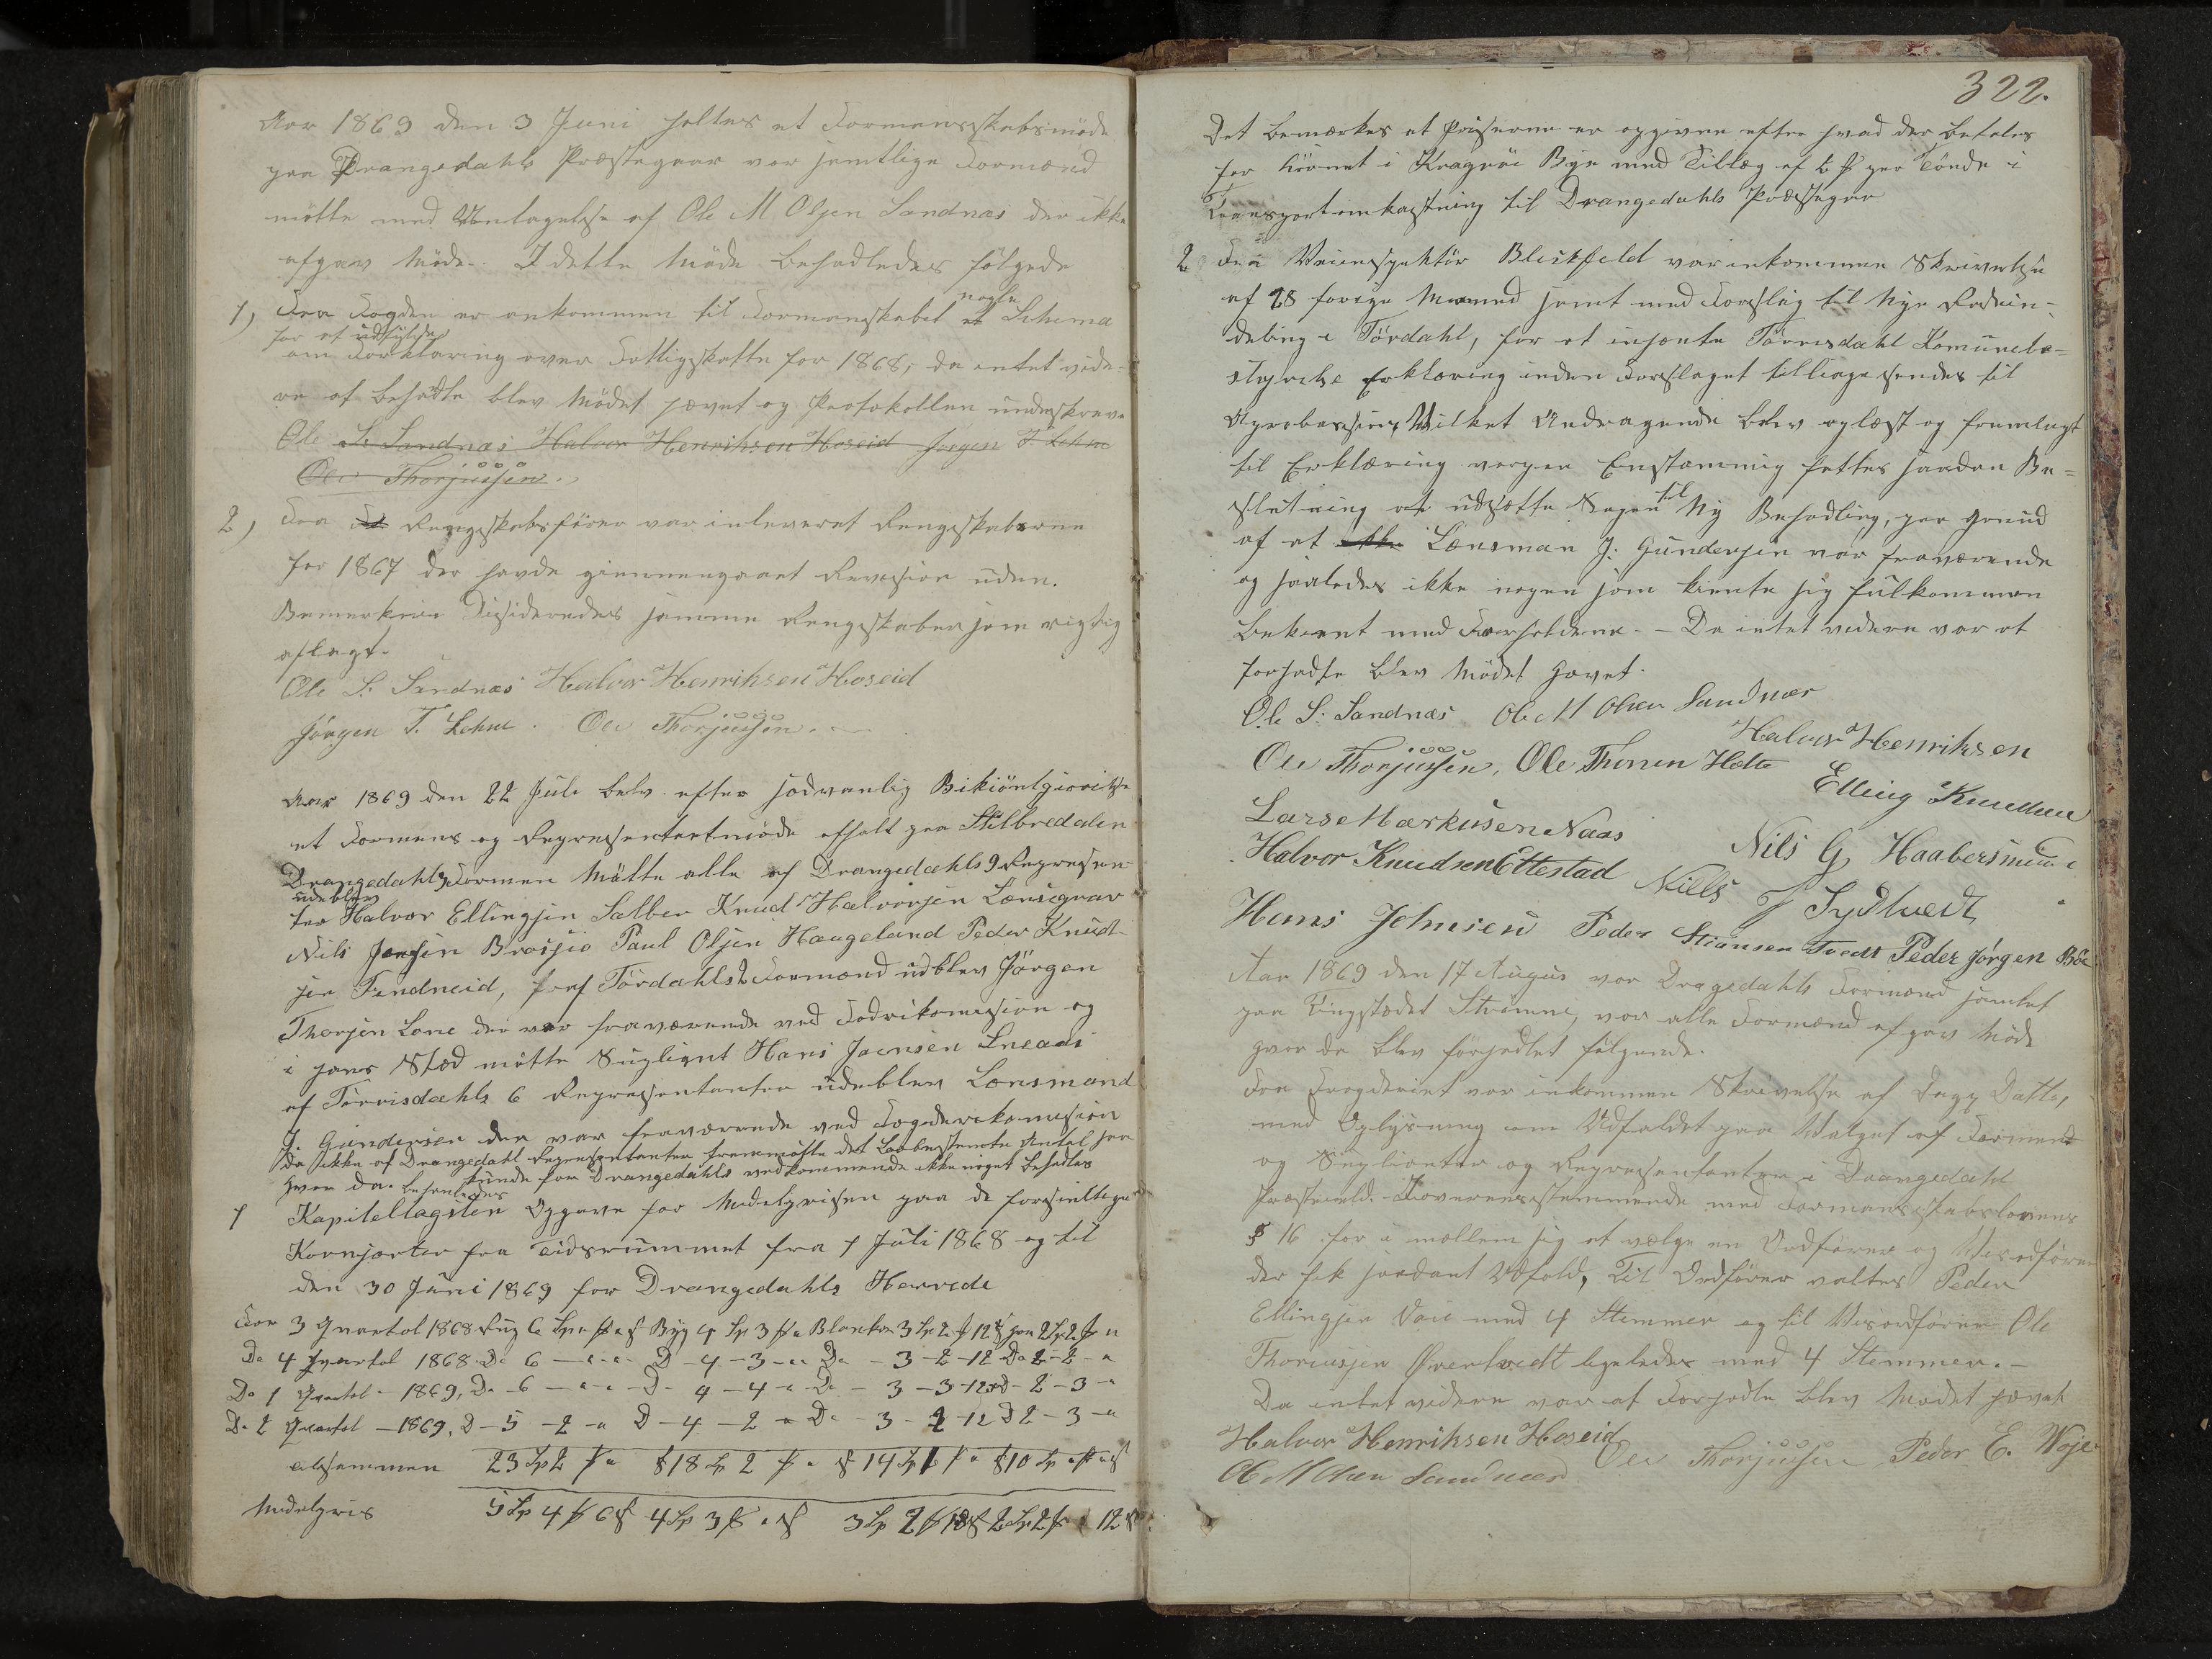 Aar 1869 den 3 Juni holtes et Formansskabsmöde
paa Drangedahls Præstegaar var samtlige Formænd
mötte med Untagelse af Ole M Olsen Sandnæs der ikke
afgav Möde. I dette Möde behadledes fölgede
1) Fra Fogden er ankommen til Formanskabet et nogle Schema
for at udfylde
om Forklaring over Fattigskatte for 1868, da intet vide-
re at behadle blev Mödet hævet og Protokollen underskreve
Ole S. Sandnæs Halvor Henriksen Hoseid Jørgen T Lehne
Ole Thorjussen.
2) Fra Regnskabsförer var inleveret Rengskaberne
for 1867 der havde giennemgaaet Revision uden.
Bemerkn Disideredes samme Rengskaber som rigtig
aflagt.
Ole S. Sandnæs Halvor Henriksen Hoseid
Jørgen T. Lehne. Ole Thorjussen.
Aar 1869 den 22 Juli belv efter sedvanlig Bikiöntgiorilse
et Formens og Representantmöde afholt paa Stilbredalen
Drangedahls Formen Mötte alle af Drangedahls 9 Represen-
udeblev
ter Halvor Ellingsen Salber Knud Halvorsen Lønsgrav
Nils Jensen Brosjø Paul Olsen Haugeland Peder Knud-
sen Findneid, saf Tördahls 2 Formænd udblev Jörgen
Thorsen Lone der var fraværende ved Fodrikomision og
i hans Sted mötte Suplignt Hans Jaensen Sneaas
af Törrisdahls 6 Representanter udeblev Lensmand
J. Gundersen der var fraværende ved Fogderikomision
da ikke af Drangedahl Representanter fremmötte det Lovbestemte Antal saa
hvor da behanledes kunde for Drangedahls vedkommende ikke noget behadles
1 Kapiteltagsten Opgave for Midelprisen paa de forsiellige
Kornsorter fra Tidsrummet fra 1 Juli 1868 og til
den 30 Juni 1869 for Drangedahls Herrede
For 3 Qvartal 1868 Rug 6 Sp " ß " Byg 4 Sp 3 ß " Blankor 3 Sp 2 ß 12 ß hav 2 Sp 2 ß "
Do 4 Qvartal 1868 Do 6 — " " D - 4 - 3 - " Do - 3 - 2 - 12 Do 2 - 2 - "
Do 1 Qvartal - 1869, Do - 6 — " - " - D - 4 - 4 - " Do - 3 - 3 - 12 D - 2 - 3 - "
Do 2 Qvartal — 1869, D - 5 - 2 - " D - 4 - 2 - " Do - 3 - 2 - 12 D 2 - 3 - "
alsammen 23 Sp 2 ß " 18 Sp 2 ß " 14 Sp 1 ß " 10 Sp " ß "
Midelpris 5 Sp 4 ß 6 ß 4 Sp 3 ß " ß 3 Sp 2 ß 18 ß 2 Sp 2 ß 12 ß
322.
Det bemærkes at Priserne er opgivne efter hvad der betales
for Kornet i Kragröe Bye med Tillæg af 2 ß per Tönde i
Transportomkastning til Drangedahls Præstegar
2 Fra Veiinspektör Blickfeld var inkommen Skrivelse
af 28 forige Maaned samt med Forslag til Nye Rodein-
deling i Tördahl, for at inhænte Törrisdahl Komunebe-
styrelse Erklæring inden Forslaget tilbage sendes til
Aprobasion, Wilket Andragende belv oplæst og fremlagt
til Erklæring verpaa Enstemmig fattes saadan Be=
slutning at udsætte Sagen til Ny Behadling, paa grund
af at Lensman J. Gundersen var fraværende
og saaledes ikke nogen som kiente sig fulkommen
bekient med Forholdene. — Da intet videre var at
forhadle blev Mödet hævet.
Ole S. Sandnæs Ole M Olsen Sandnæs
Halvor Henriksen
Ole Thorjussen, Ole Thorsen Holte
Elling Knudsen
Lars Markusen Naas
Nils G Haabersmoen
Halvor Knudsen Ettestad Niels J Sydtvedt
Hans Johnsen Peder Stiansen Tvedt Peder Jørgen Böe
Aar 1869 den 17 August var Dragedahls Formænd samlet
paa Tingstedet Strömme, var alle Formænd afgav Möde
hvor da blev forhadlet fölgende.
Fra Fogderiet var inkommen Skrivelse af Dags Datto,
med Oplysning om Udfaldet paa Walget af Formend
og Suplianter og Representanter i Drangedahl
Præstegield. - Foverensstemmende med Formansskabslovens
§ 16 for i mellem sig at vælge en Ordförer og Viseordförer
der fik saadant Udfald, Til Ordförer valtes Peder
Ellingsen Voie med 4 Stemmer og til Visordförer Ole
Thoriusen Øvertvedt ligeledes med 4 Stemmer. —
Da intet videre var at Forhadle blev Mödet hævet
Halvor Henriksen Hoseid
Ole Thorjussen Peder E. Woje
Ole M Olsen Sandnæs